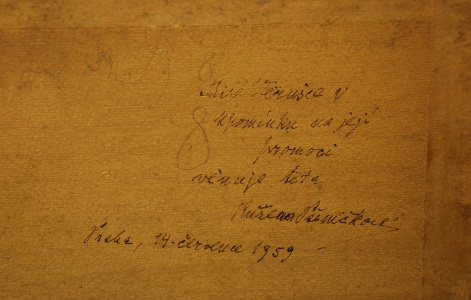 Milé Věrušce v
upomínku na její
promoci
věnuje teta
Růžena
Praha, 14. července 1959